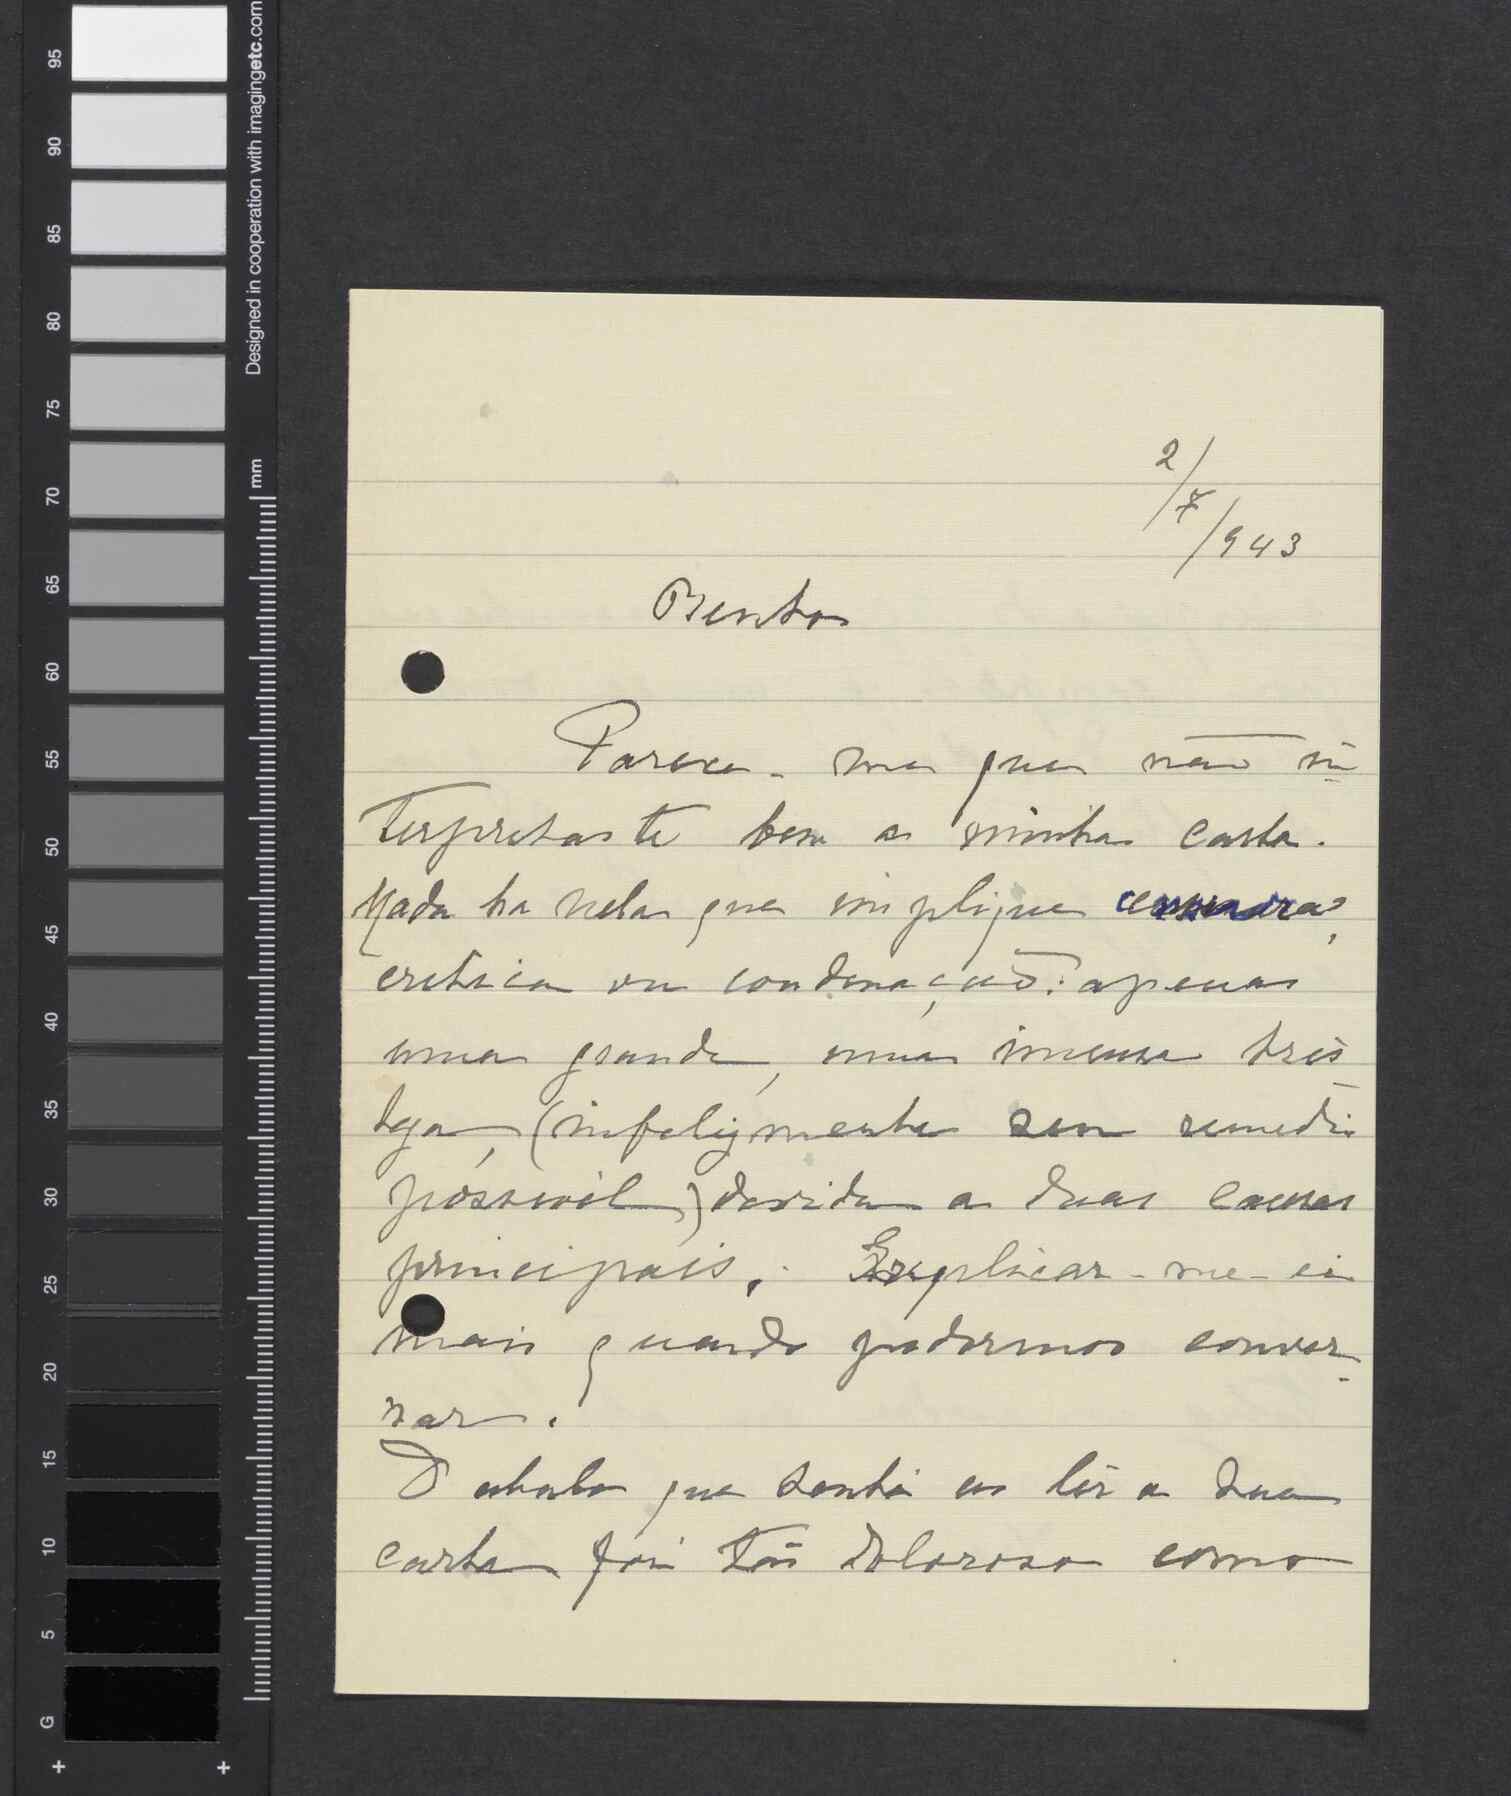 95
90
85
80
75
70
65
60
55
50
45
40
35
30
25
20
15
10
5
G
Designed in cooperation with imagingetc.com
mm
2/7/943
Bento
Parece-me que não in-
terpretaste bem a minha carta.
Nada ha nela que implique censura,
critica ou condenação: apenas
uma grande, uma imensa tris-
teza, (infelizmente sem remedio
possivel,) devida a duas causas
principais. Explicar-me-ei
mais quando podermos conver-
sar.
O abalo que senti ao lêr a tua
carta foi tão doloroso como